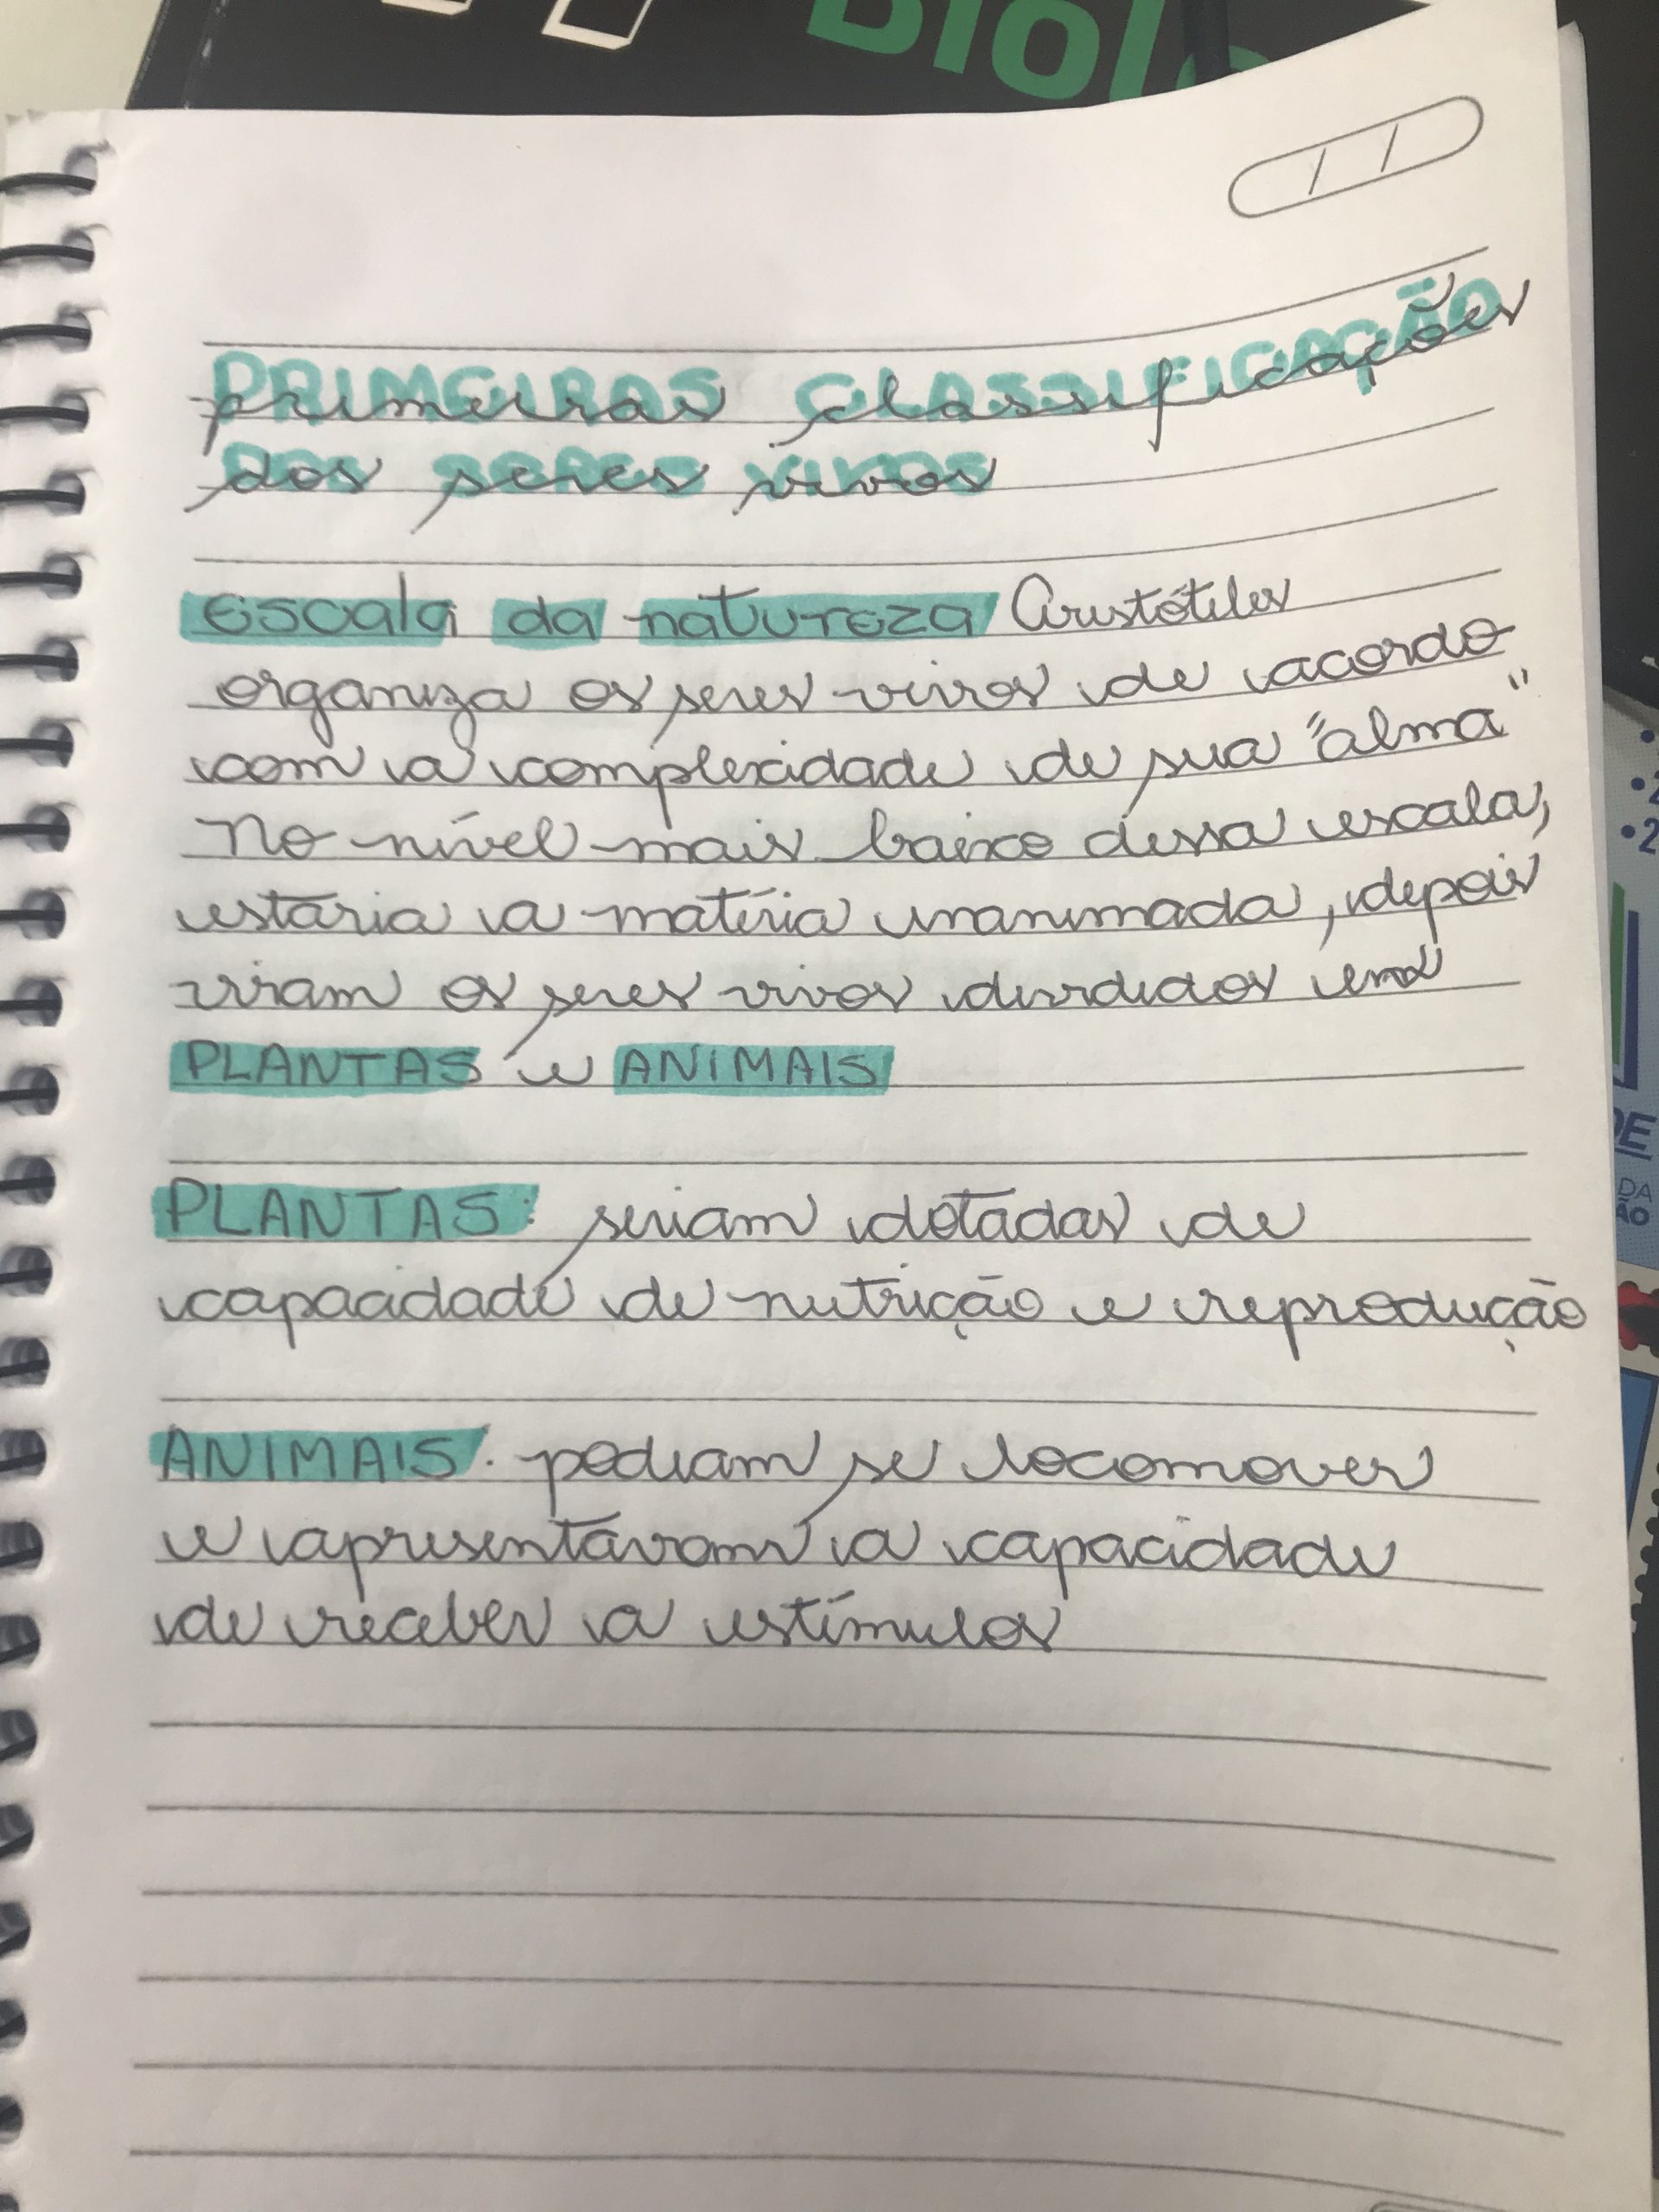 Biolo
PRIMEIRAS CLASSIFICAÇÃO
primeiras classificações
DOS SERES VIVOS
dos seres vivos
escala da natureza Aristóteles
organiza os seres vivos de acordo
com a complexidade de sua "alma"
No nível mais baixo dessa escala,
estaria a matéria inanimada, depois
viriam os seres vivos divididos em
PLANTAS e ANIMAIS
PLANTAS: seriam dotadas de
capacidade de nutrição e reprodução
ANIMAIS: podiam se locomover
e apresentavam a capacidade
de receber a estímulos
DA
ÃO